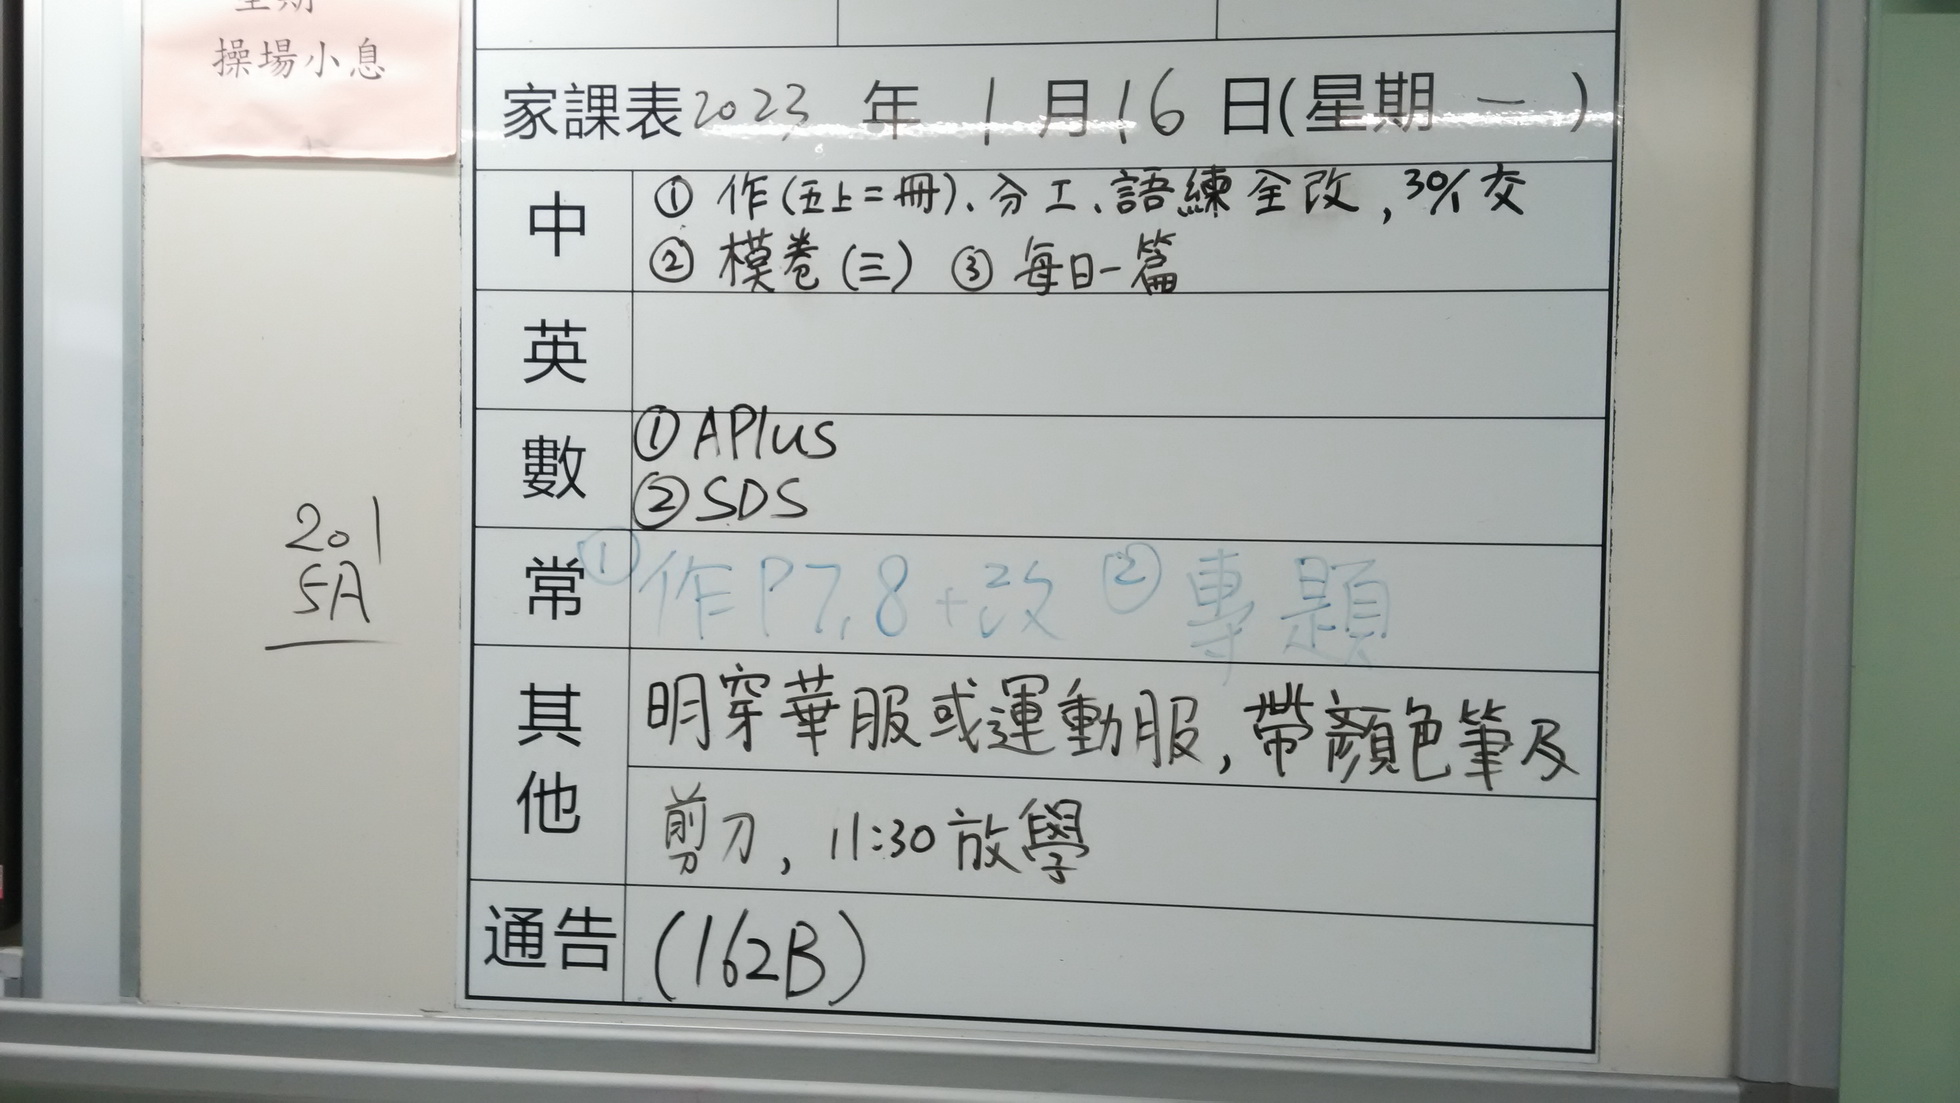 操場小息
家課表 2023 年 1 月 16 日(星期 一 )
中
① 作(五上二冊)、分工、語練全改, 30/1 交
② 模卷 (三) ③ 每日一篇
英
數
① APlus
② SDS
常
① 作P7,8+改 ② 專題
201
5A
其他
明穿華服或運動服, 帶顏色筆及
剪刀, 11:30 放學
通告
(162B)